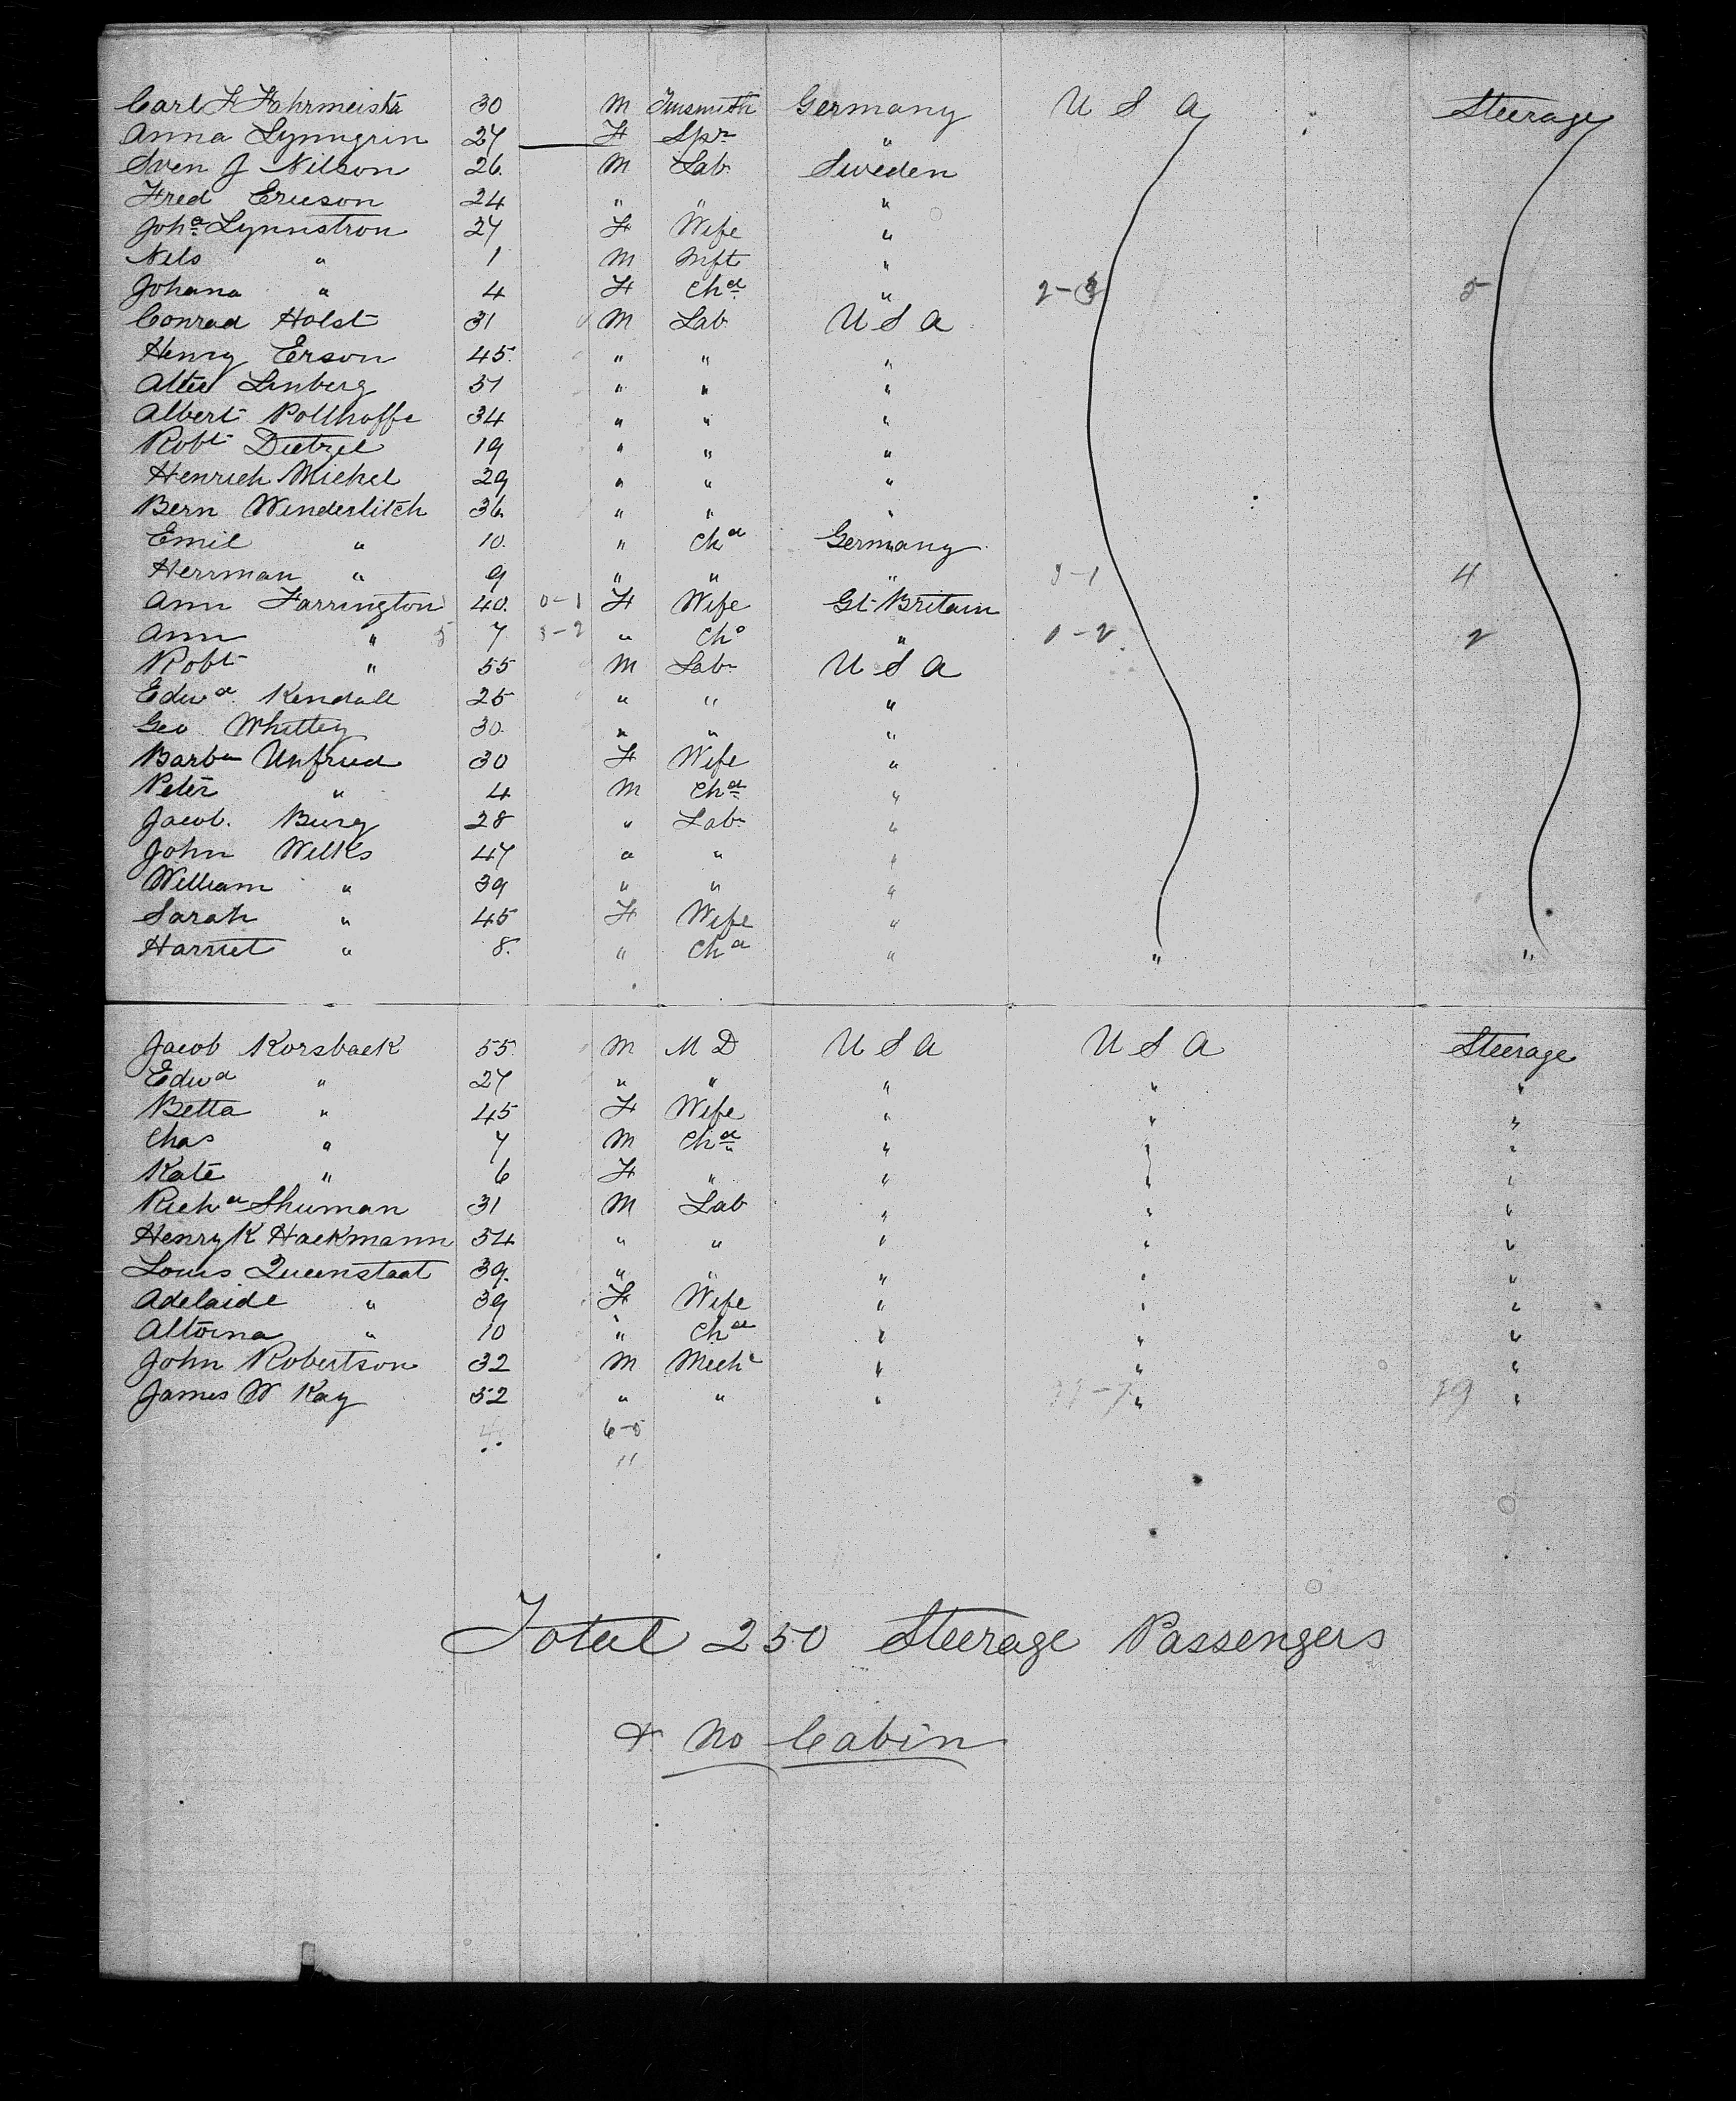 Carl F Fahrmeistr 30 M Tinsmith Germany U S A Steerage
Anna Lynngrin 27 F Spr "
Sven J Nilson 26 M Lab Sweden
Fred Ericson 24 " " "
Joha Lynnstron 27 F Wife "
Nels " 1 M Inft "
Johana " 4 F Chd " 2-3 5
Conrad Holst 31 M Lab U S A
Henry Erson 45 " " "
Linberg 51 " " "
Albert Polthoffe 34 " " "
Robt Dietzel 19 " " "
Henrich Michel 29 " " "
Bern Winderlitch 36 " " "
Emil " 10 " Chd Germany
Herrman " 9 " " " 3-1 4
Ann Farrington 40 0-1 F Wife Gt Britain
Ann " 5 7 3-2 " Chd " 0-2 2
Robt " 55 M Lab U S A
Edwd Kendall 25 " " "
Geo Whittey 30 " " "
Barba Unfried 30 F Wife "
Peter " 4 M Chd "
Jacob Burg 28 " Lab "
John Wilks 47 " " "
William " 39 " " "
Sarah " 45 F Wife "
Harriet " 8 " Chd " " "
Jacob Korsback 55 M M D U S A U S A Steerage
Edwd " 27 " " " " "
Betta " 45 F Wife " " "
Chas " 7 M Chd " " "
Kate " 6 F " " " "
Richd Shuman 31 M Lab " " "
Henry K Hackmann 54 " " " " "
Louis Queenstaat 39 " " " " "
Adelaide " 39 F Wife " " "
Altoina " 10 " Chd " " "
John Robertson 32 M Mech " " "
James W Kay 52 " " " " "
6-5
11
Total 250 Steerage Passengers
& No Cabin